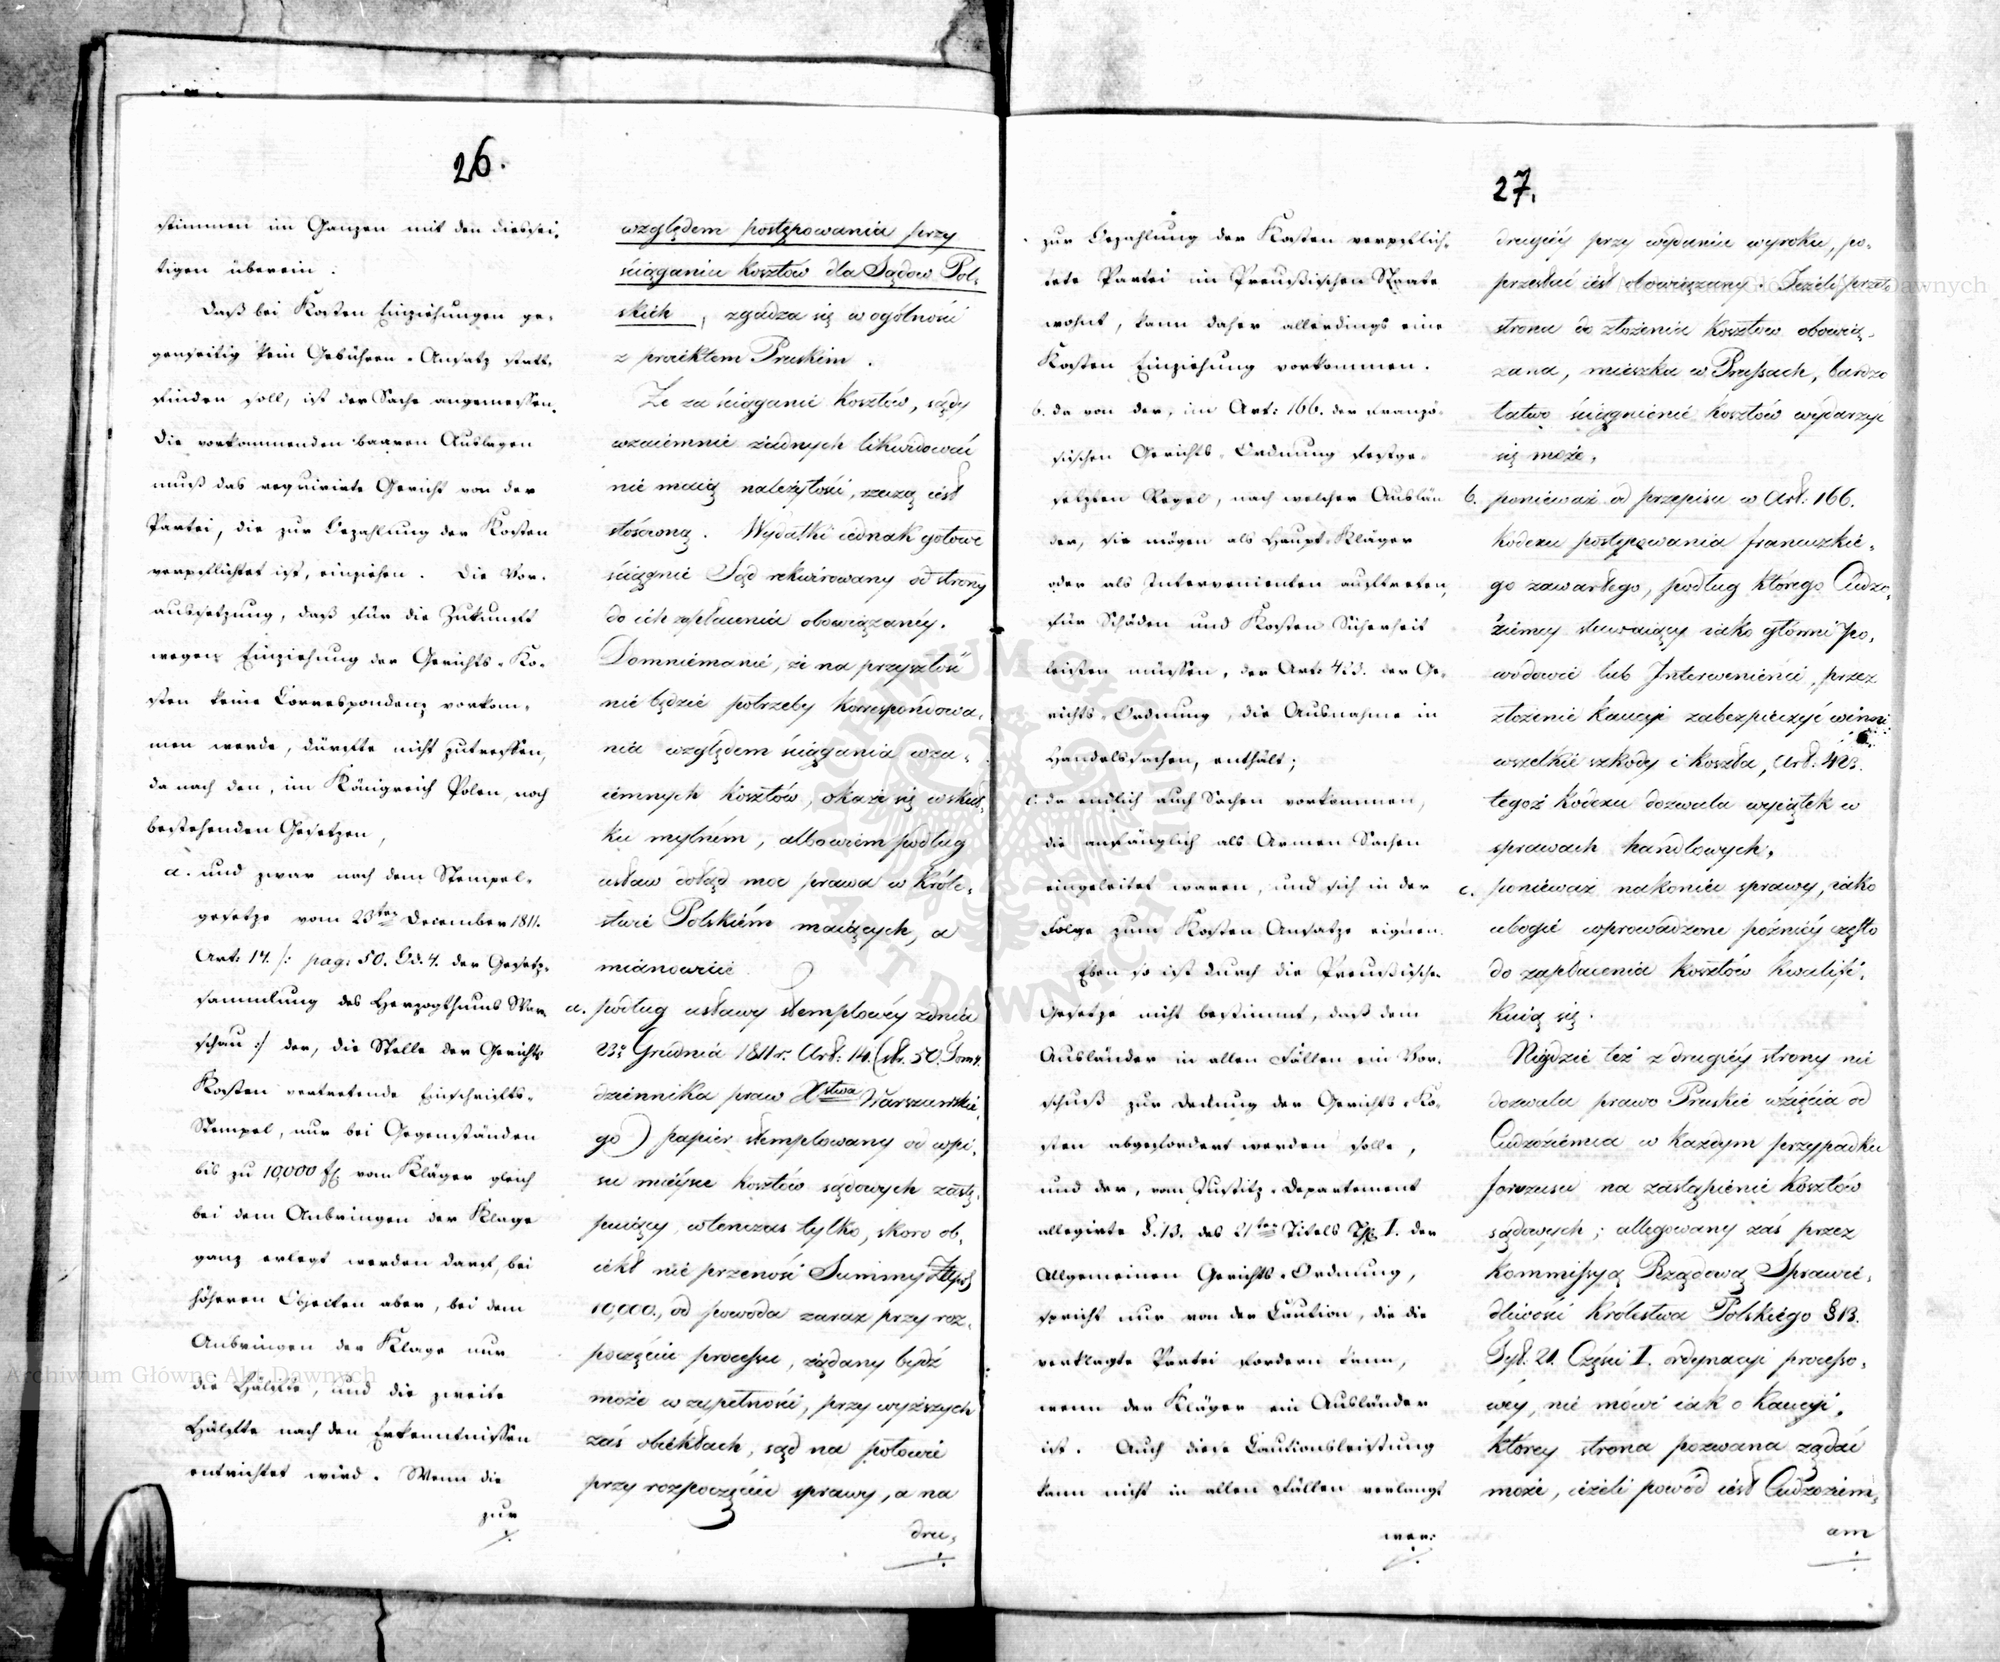 26.
stimmen im Ganzen mit den diessei-
tigen überein.
Daß bei Kosten Einziehungen ge-
genseitig kein Gebühren-Ansatz statt-
finden soll, ist der Sache angemessen.
Die vorkommenden baaren Auslagen
muß das requirirte Gericht von der
Partei, die zur Bezahlung der Kosten
verpflichtet ist, einziehen. Die Vor-
aussetzung, daß für die Zukunft
wegen Einziehung der Gerichts-Ko-
sten keine Correspondenz vorkom-
men werde, dürfte nicht zutreffen,
da nach den, im Königreich Polen, noch
bestehenden Gesetzen,
a. und zwar nach dem Stempel-
gesetze vom 23ten December 1811.
Art: 14. /: pag: 50. Bd. 4. der Gesetz-
sammlung des Herzogthums War-
schau :/ der, die Stelle der Gerichts
Kosten vertretende Einschrifts-
Stempel, nur bei Gegenständen
bis zu 10,000 fl. vom Kläger gleich
bei dem Anbringen der Klage
ganz erlegt werden darf, bei
höheren Objecten aber, bei dem
Anbringen der Klage nur
die Hälfte, und die zweite
Hälfte nach den Erkenntnissen
entrichtet wird. Wenn die
zur
względem postępowania przy
ściąganiu kosztów dla Sądow Pol-
skich, zgadza się w ogólności
z proiektem Pruskim.
Że za ściąganie kosztów, sądy
wzaiemnie żadnych likwidować
nie maią należytości, rzeczą iest
stósowną. Wydatki iednak gotowe
ściągnie Sąd rekwirowany od strony
do ich zapłacenia obowiązanéy.
Domniemanie, że na przyszłość
nie będzie potrzeby korrespondowa-
nia względem ściągania wza-
iemnych kosztów, okaże się w skut-
ku mylném, albowiem podług
ustaw dotąd moc prawa w Króle-
stwie Polskiém maiących, a
mianowicie
a. podług ustawy stemplowéy z dnia
23o Grudnia 1811 r. Art: 14. (str. 50. Tom 4.
dziennika praw Xstwa Warszawskie-
go) papier stemplowany od wpi-
su mieysce kosztów sądowych zastę-
puiący, wtenczas tylko, skoro ob-
iekt nie przenosi Summy Złpol
10,000., od powoda zaraz przy roz-
poczęciu processu, żądany bydź
może w zupełności, przy wyższych
zaś obiektach, sąd na połowie
przy rozpoczęciu sprawy, a na
dru-
27.
zur Bezahlung der Kosten verpflich-
tete Partei im Preußischen Staate
wohnt, kann daher allerdings eine
Kosten Einziehung vorkommen.
b. da von der, im Art: 166. der Franzö-
sischen Gerichts-Ordnung festge-
setzten Regel, nach welcher Auslän
der, sie mögen als Haupt-Kläger
oder als Intervenienten auftreten,
für Schäden und Kosten Sicherheit
leisten müssen, der Art: 423. der Ge-
richts-Ordnung, die Ausnahme in
Handelssachen, enthält;
c. da endlich auch Sachen vorkommen,
die anfänglich als Armen Sachen
eingeleitet waren, und sich in der
Folge zum Kosten Ansatze eignen.
Eben so ist durch die Preußische
Gesetze nicht bestimmt, daß dem
Ausländer in allen Fällen ein Vor-
schuß zur Deckung der Gerichts-Ko-
sten abgefordert werden solle,
und der, vom Justitz-Departement
allegirte §. 13. des 21ten Titels Th. I. der
Allgemeinen Gerichts-Ordnung,
spricht nur von der Caution, die die
verklagte Partei fordern kann,
wenn der Kläger ein Ausländer
ist. Auch diese Cautionsleistung
kann nicht in allen Fällen verlangt
wer-
drugiéy przy wydaniu wyroku, po-
przestać iest obowiązany. Jeżeli przeto
strona do złożenia kosztow obowią-
zana, mieszka w Prussach, bardzo
łatwo ściągnienie kosztów wydarzyć
się może,
b. ponieważ od przepisu w Art: 166.
kodexu postępowania francuzkie-
go zawartego, podług którego Cudzo-
ziemcy stawaiący iako główni po-
wodowie lub Interwenienci, przez
złożenie kaucyi zabezpieczyć winni
wszelkie szkody i koszta, Art. 423.
tegoż kodexu dozwala wyiątek w
sprawach handlowych,
c. ponieważ nakoniec sprawy, iako
ubogie wprowadzone późniéy często
do zapłacenia kosztów kwalifi-
kuią się.
Nigdzie też z drugiéy strony nie
dozwala prawo Pruskie wzięcia od
Cudzoziemca w każdym przypadku
forszusu na zastąpienie kosztów
sądowych; allegowany zaś przez
Kommissyą Rządową Sprawie-
dliwości Królestwa Polskiego § 13.
Tyt: 21. Części I. ordynacyi processo-
wéy, nie mówi iak o kaucyi,
którey strona pozwana żądać
może, ieżeli powód iest Cudzoziem-
am
Archiwum Główne Akt Dawnych
Archiwum Główne Akt Dawnych
ARCHIWUM GŁÓWNE AKT DAWNYCH